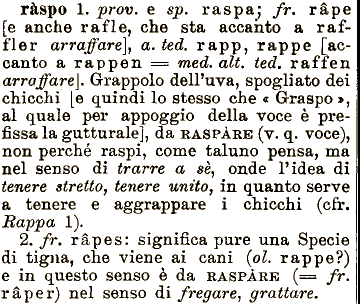 ràspo 1. prov. e sp. raspa; fr. râpe
[e anche rafle, che sta accanto a raf-
fler arraffare], a. ted. rapp, rappe [ac-
canto a rappen = med. alt. ted. raffen
arraffare]. Grappolo dell'uva, spogliato dei
chicchi [e quindi lo stesso che « Graspo »,
al quale per appoggio della voce è pre-
fissa la gutturale], da RASPÀRE (v. q. voce),
non perché raspi, come taluno pensa, ma
nel senso di trarre a sè, onde l'idea di
tenere stretto, tenere unito, in quanto serve
a tenere e aggrappare i chicchi (cfr.
Rappa 1).
2. fr. râpes: significa pure una Specie
di tigna, che viene ai cani (ol. rappe?)
e in questo senso è da RASPÀRE (= fr.
râper) nel senso di fregare, grattare.